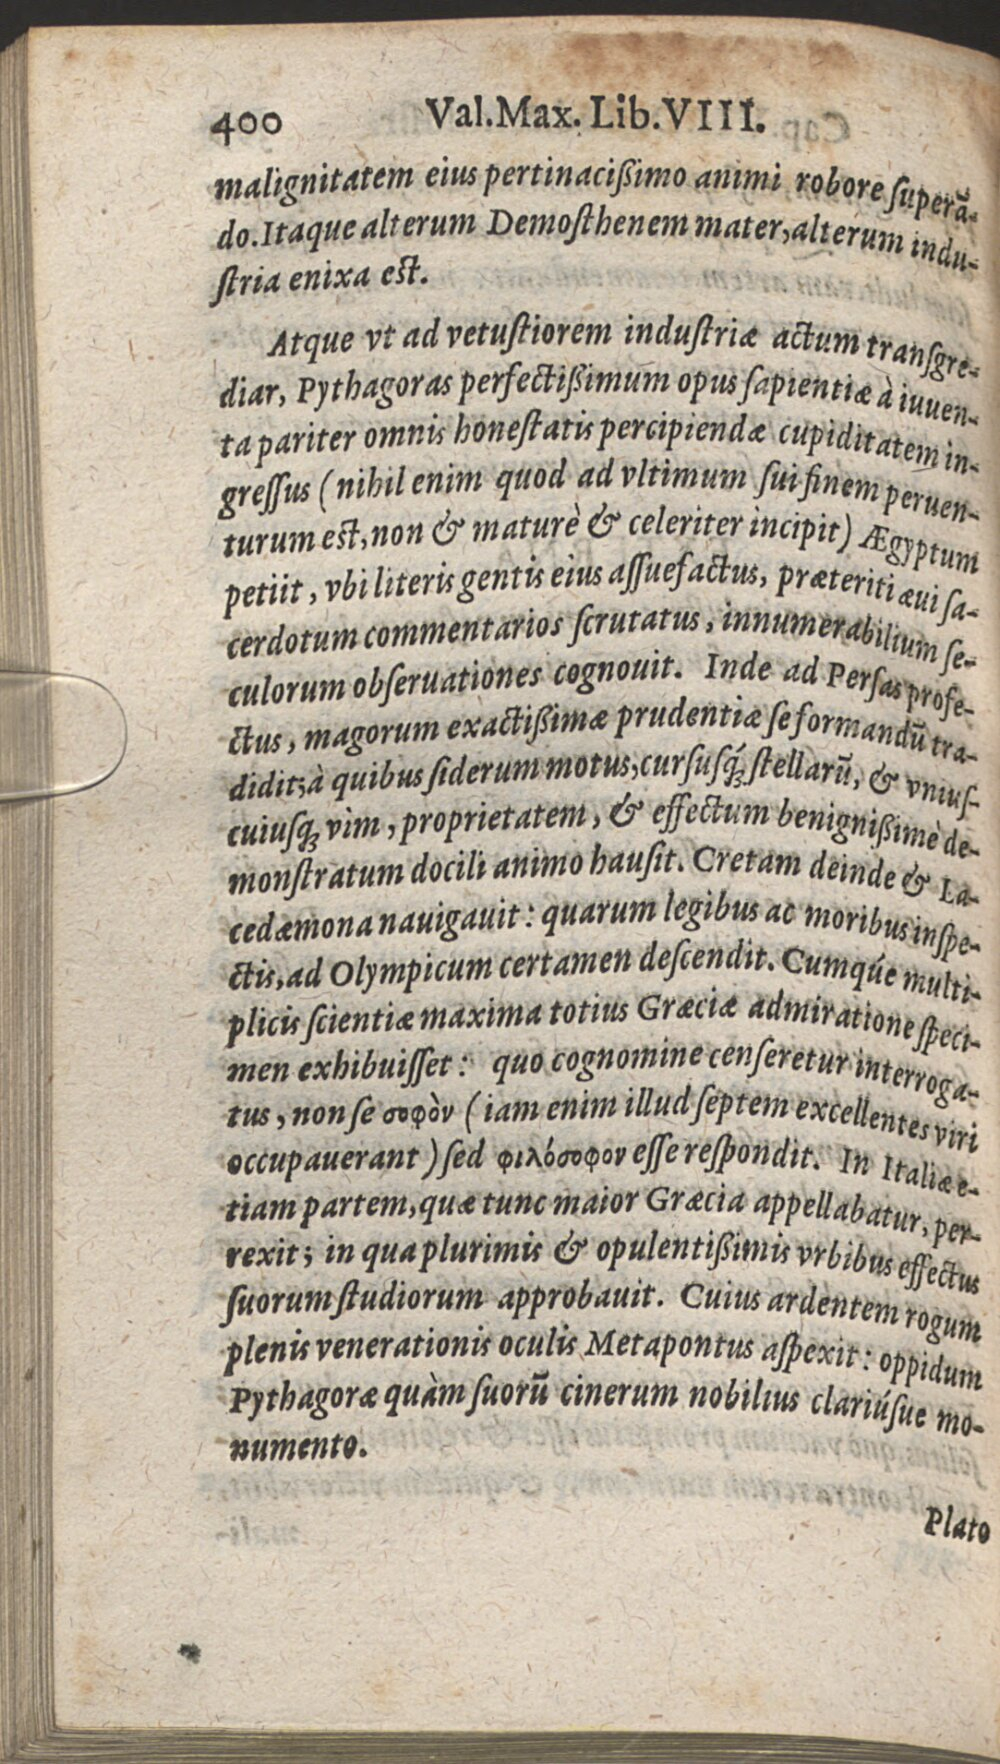 400 Val.Max. Lib.VIII.
malignitatem eius pertinacißimo animi robore ſuperā-
do. Itaque alterum Demoſthenem mater, alterum indu-
ſtria enixa eſt.
Atque vt ad vetuſtiorem induſtriæ actum tranſgre-
diar, Pythagoras perfectißimum opus ſapientiæ à iuuen-
ta pariter omnis honeſtatis percipiendæ cupiditatem in-
greſſus (nihil enim quod ad vltimum ſui finem peruen-
turum eſt, non & maturè & celeriter incipit) Ægyptum
petiit, vbi literis gentis eius aſſuefactus, præteriti æui ſa-
cerdotum commentarios ſcrutatus, innumerabilium ſe-
culorum obſeruationes cognouit. Inde ad Perſas profe-
ctus, magorum exactißimæ prudentiæ ſe formandū tra-
didit; à quibus ſiderum motus, curſuſq́; ſtellarū, & vniuſ-
cuiuſq; vim, proprietatem, & effectum benignißimè de-
monſtratum docili animo hauſit. Cretam deinde & La-
cedæmona nauigauit: quarum legibus ac moribus inſpe-
ctis, ad Olympicum certamen deſcendit. Cumqúe multi-
plicis ſcientiæ maxima totius Græciæ admiratione ſpeci-
men exhibuiſſet: quo cognomine cenſeretur interroga-
tus, non ſe σοφὸν (iam enim illud ſeptem excellentes viri
occupauerant) ſed φιλόσοφον eſſe reſpondit. In Italiæ e-
tiam partem, quæ tunc maior Græcia appellabatur, per-
rexit; in qua plurimis & opulentißimis vrbibus effectus
ſuorum ſtudiorum approbauit. Cuius ardentem rogum
plenis venerationis oculis Metapontus aſpexit: oppidum
Pythagoræ quàm ſuorū cinerum nobilius clariúſue mo-
numento.
Plato